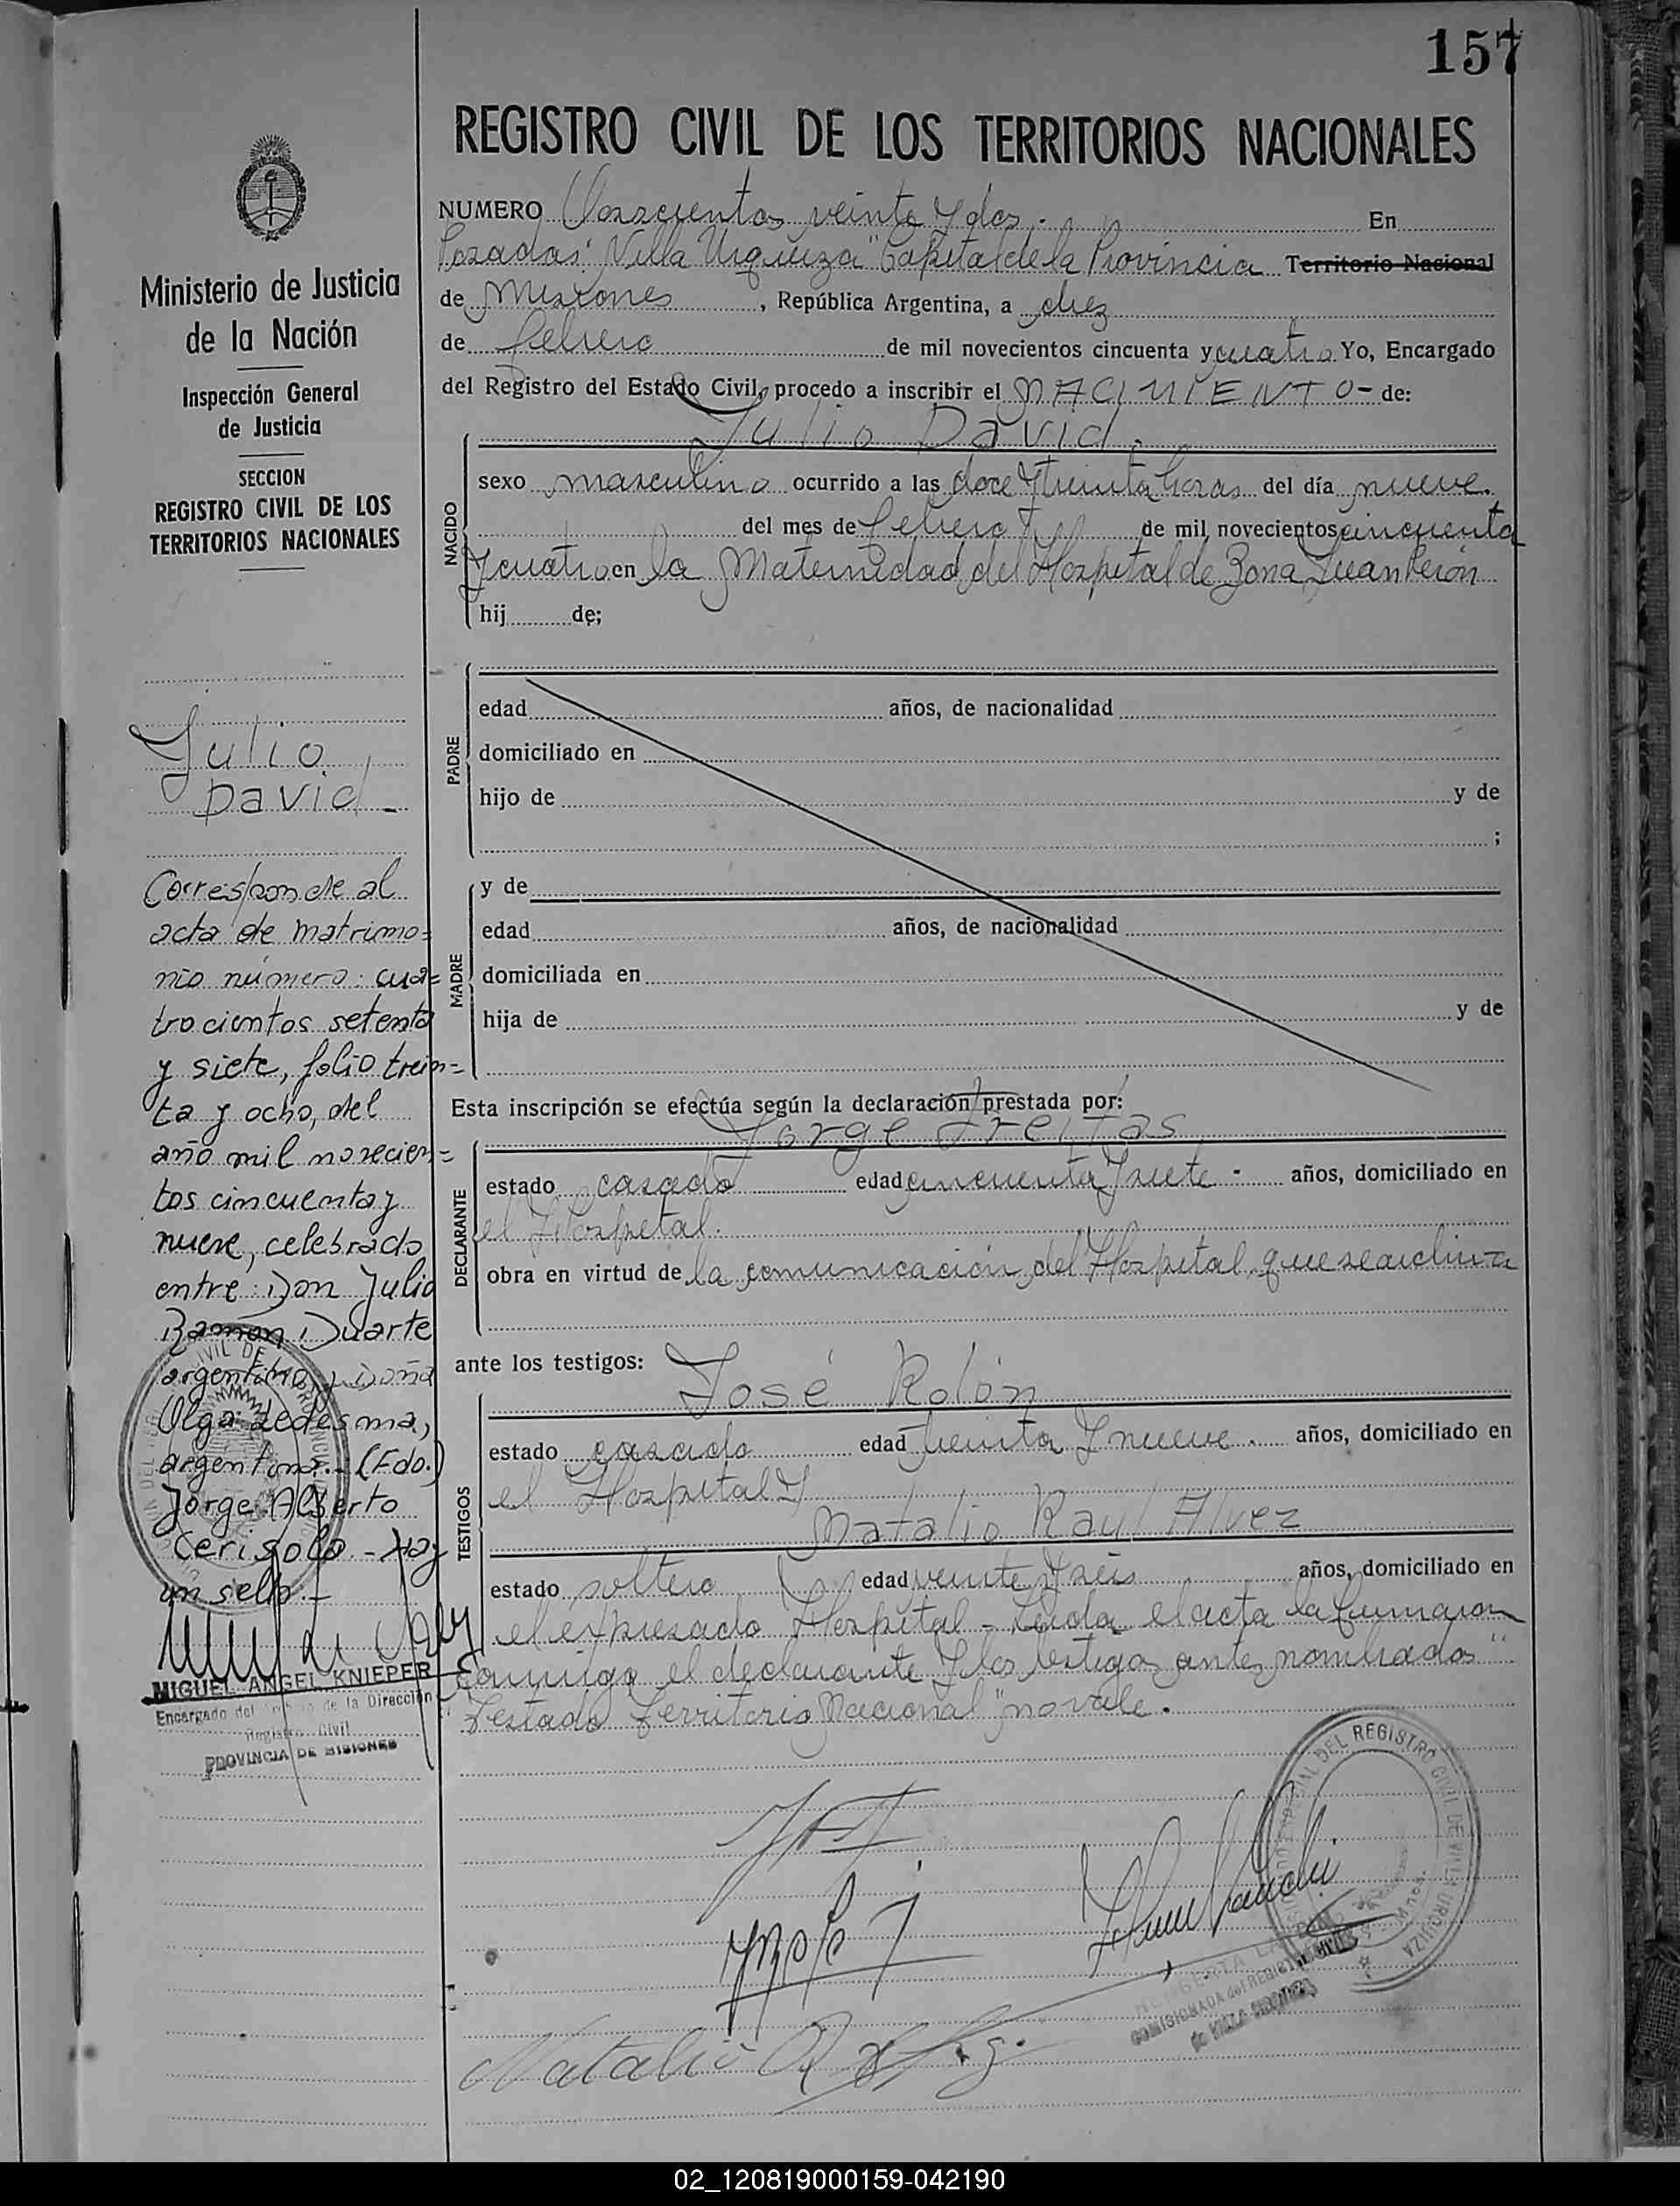 157
REGISTRO CIVIL DE LOS TERRITORIOS NACIONALES
NUMERO Doscientos veinte y dos. En
Posadas "Villa Urquiza" Capital de la Provincia Territorio Nacional
de Misiones, República Argentina, a diez
de febrero de mil novecientos cincuenta y cuatro Yo, Encargado
del Registro del Estado Civil, procedo a inscribir el NACIMIENTO- de:
Julio David.
NACIDO
sexo masculino ocurrido a las doce y treinta horas del día nueve.
del mes de febrero de mil novecientos cincuenta
y cuatro en la Maternidad del Hospital de Zona Juan Perón
hij de;
PADRE
edad años, de nacionalidad
domiciliado en
hijo de y de
;
MADRE
y de
edad años, de nacionalidad
domiciliada en
hija de y de
Esta inscripción se efectúa según la declaración prestada por:
Jorge Freitas
DECLARANTE
estado casado edad cincuenta y siete - años, domiciliado en
el Hospital.
obra en virtud de la comunicación del Hospital que se archiva
ante los testigos:
José Rolón
TESTIGOS
estado casado edad treinta y nueve. años, domiciliado en
el Hospital y
Natalio Raul Alvez
estado soltero edad veinte y seis años, domiciliado en
el expresado Hospital - Leída el acta la firmaron
conmigo el declarante y los testigos antes nombrados "
Testado Territorio Nacional" no vale.
Ministerio de Justicia
de la Nación
Inspección General
de Justicia
SECCION
REGISTRO CIVIL DE LOS
TERRITORIOS NACIONALES
Julio
David -
Corresponde al
acta de matrimo=
nio número: cua=
trocientos setenta
y siete, folio trein=
ta y ocho, del
año mil novecien=
tos cincuenta y
nueve, celebrado
entre: Don Julio
Ramón Duarte
argentino y Doña
Olga Ledesma,
argentina.- (Fdo.)
Jorge Alberto
Cerisola - Hay
un sello.-
MIGUEL ANGEL KNIEPER
Encargado del de la Dirección
Registro Civil
PROVINCIA DE MISIONES
Natalio R
DEL REGISTRO CIVIL DE VILLA URQUIZA
COMISIONADA del REGISTRO CIVIL
de VILLA URQUIZA
02_120819000159-042190